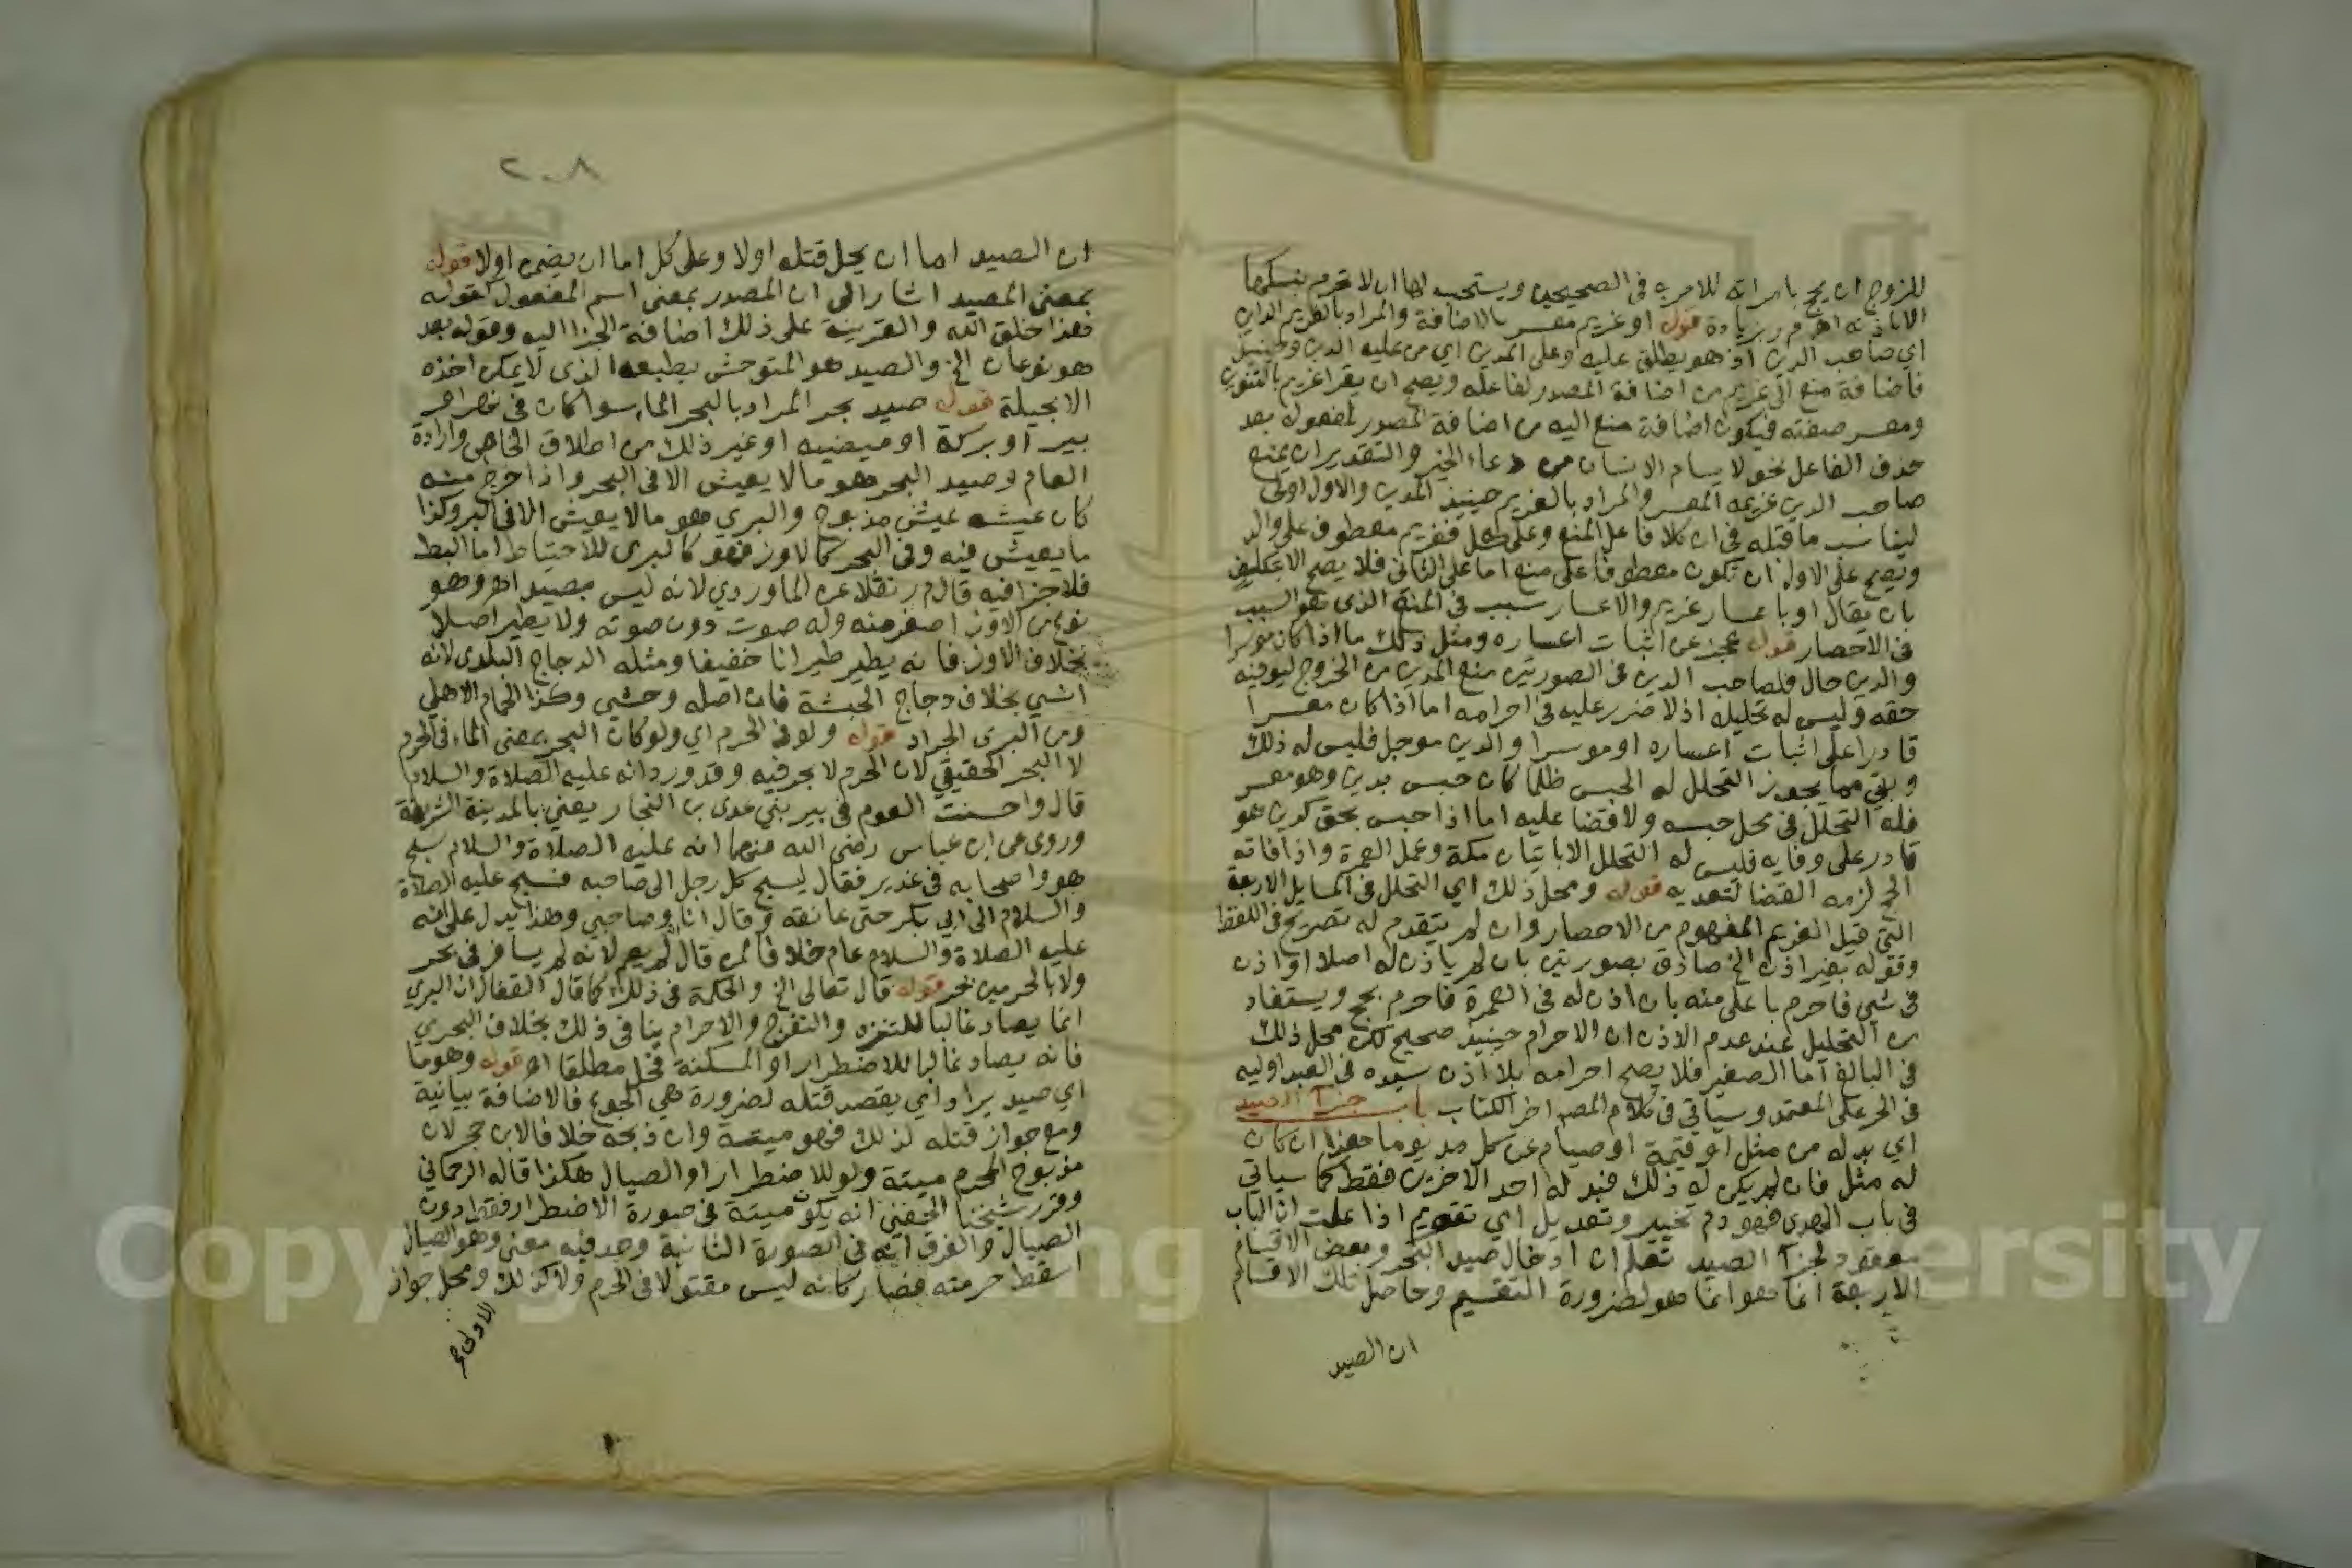 للزوج ان يحج بامراته للامر به في الصحيحين ويستحب لها ان لا تحرم بنسكها
الا باذنه اهـ م ر بزيادة قوله او غريم معسر بالاضافة والمراد بالغريم الداين
اي صاحب الدين اذ هو يطلق عليه وعلى المدين اي من عليه الدين وحينيذ
فاضافة منع الى غريم من اضافة المصدر لفاعله ويصح ان يقرا غريم بالتنوين
ومعسر صفته فيكون اضافة منع اليه من اضافة المصدر لمفعوله بعد
حذف الفاعل نحو لا يسام الانسان من دعاء الخير والتقدير ان يمنع
صاحب الدين غريمه المعسر والمراد بالغريم حينيذ المدين والاول اولى
ليناسب ما قبله في ان كلا فاعل المنع وعلى كل فغريم معطوف على والد
ويصح على الاول ان يكون معطوفا على منع اما على الثاني فلا يصح الا بتكليف
بان يقال او باعسار غريم والاعسار سبب في المنع الذي هو السبب
في الاحصار قوله عجز عن اثبات اعساره ومثل ذلك ما اذا كان موسرا
والدين حال فلصاحب الدين في الصورتين منع المدين من الخروج ليوفيه
حقه وليس له تحليله اذ لا ضرر عليه في احرامه اما اذا كان معسرا
قادرا على اثبات اعساره او موسرا والدين موجل فليس له ذلك
وبقي مما يجوز التحلل له الحبس ظلما كان حبس بدين وهو معسر
فله التحلل في محل حبسه ولا قضا عليه اما اذا حبس بحق كدين هو
قادر على وفايه فليس له التحلل الا باتيان مكة وعمل العمرة واذا فاته
الحج لزمه القضا لتعديه قوله ومحل ذلك اي التحلل في المسايل الاربعة
التي قبل الغريم المفهوم من الاحصار وان لم يتقدم له تصريح في اللفظ
وقوله بغير اذن الخ صادق بصورتين بان لم ياذن له اصلا او اذن
في شي فاحرم باعلى منه بان اذن له في العمرة فاحرم بحج ويستفاد
من التحليل عند عدم الاذن ان الاحرام حينيذ صحيح لكن محل ذلك
في البالغ اما الصغير فلا يصح احرامه بلا اذن سيده في العبد او وليه
في الحر على المعتمد وسياتي في كلام المصـ اخر الكتاب باب جزآ الصيد
اي بدله من مثل او قيمة او صيام عن كل مد يوما هذا ان كان
له مثل فان لم يكن له ذلك فبدله احد الاخرين فقط كما سياتي
في باب الهدي فهو دم تخيير وتعديل اي تقويم اذا علمت ان الباب
معقود لجزآ الصيد تعلم ان ادخال صيد البحر وبعض الاقسام
الاربعة انما هو انما هو لضرورة التقسيم وحاصل تلك الاقسام
ان الصيد
٢٠٨
ان الصيد اما ان يحل قتله اولا وعلى كل اما ان يضمن اولا قوله
بمعنى المصيد اشار الى ان المصدر بمعنى اسم المفعول كقوله
هذا خلق الله والقرينة على ذلك اضافة الجزا اليه وقوله بعد
هو نوعان الخ والصيد هو المتوحش بطبعه الذي لا يمكن اخذه
الا بحيلة قوله صيد بحر المراد بالبحر الماء سوا كان في نهر او
بير او بركة او ميضيه او غير ذلك من اطلاق الخاص وارادة
العام وصيد البحر هو ما لا يعيش الا في البحر واذا خرج منه
كان عيشه عيش مذبوح والبري هو ما لا يعيش الا في البر وكذا
ما يعيش فيه وفي البحر كالاوز فهو كالبري للاحتياط اما البط
فلا جزا فيه قال م ر نقلا عن الماوردي لانه ليس بصيد اهـ وهو
نوع من الاوز اصغر منه وله صوت دون صوته ولا يطير اصلا
بخلاف الاوز فانه يطير طيرانا خفيفا ومثله الدجاج البلدي لانه
انسي بخلاف دجاج الحبشة فان اصله وحشي وكذا الحمام الاهلي
ومن البري الجراد قوله ولو في الحرم اي ولو كان البحر بمعنى الماء في الحرم
لا البحر الحقيقي لان الحرم لا بحر فيه وقد ورد انه عليه الصلاة والسلام
قال واحسنت العوم في بير بني عدي بن النجار يعني بالمدينة الشريفة
وروى عن ابن عباس رضي الله عنهما انه عليه الصلاة والسلام سبح
هو واصحابه في غدير فقال ليسبح كل رجل الى صاحبه فسبح عليه الصلاة
والسلام الى ابي بكر حتى عانقه وقال انا وصاحبي وهذا يدل على انه
عليه الصلاة والسلام عام خلافا لمن قال لم يعم لانه لم يسافر في بحر
ولا بالحرمين بحر قوله قال تعالى الخ والحكمة في ذلك كما قال القفال ان البري
انما يصاد غالبا للتنزه والتفرج والاحرام ينافي ذلك بخلاف البحري
فانه يصاد غالبا للاضطرار او المسكنة فحل مطلقا اهـ قوله وهو ما
اي صيد يراد اي يقصد قتله لضرورة هي الجوع فالاضافة بيانية
ومع جواز قتله لذلك فهو ميتة وان ذبحه خلافا لابن حجر لان
مذبوح المحرم ميتة ولو للاضطرار او الصيال هكذا قاله الرحماني
وقرر شيخنا الحفني انه يكون ميتة في صورة الاضطرار فقط دون
الصيال والفرق انه في الصورة الثانية وجد فيه معنى وهو الصيال
اسقط حرمته فصار كانه ليس مقتولا في الحرم ولا كذلك ومحل جواز